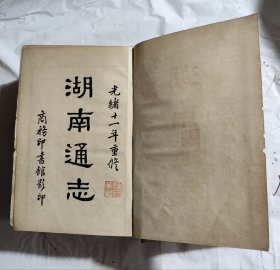 光緒十一年重修
湖南通志
商務印書館影印